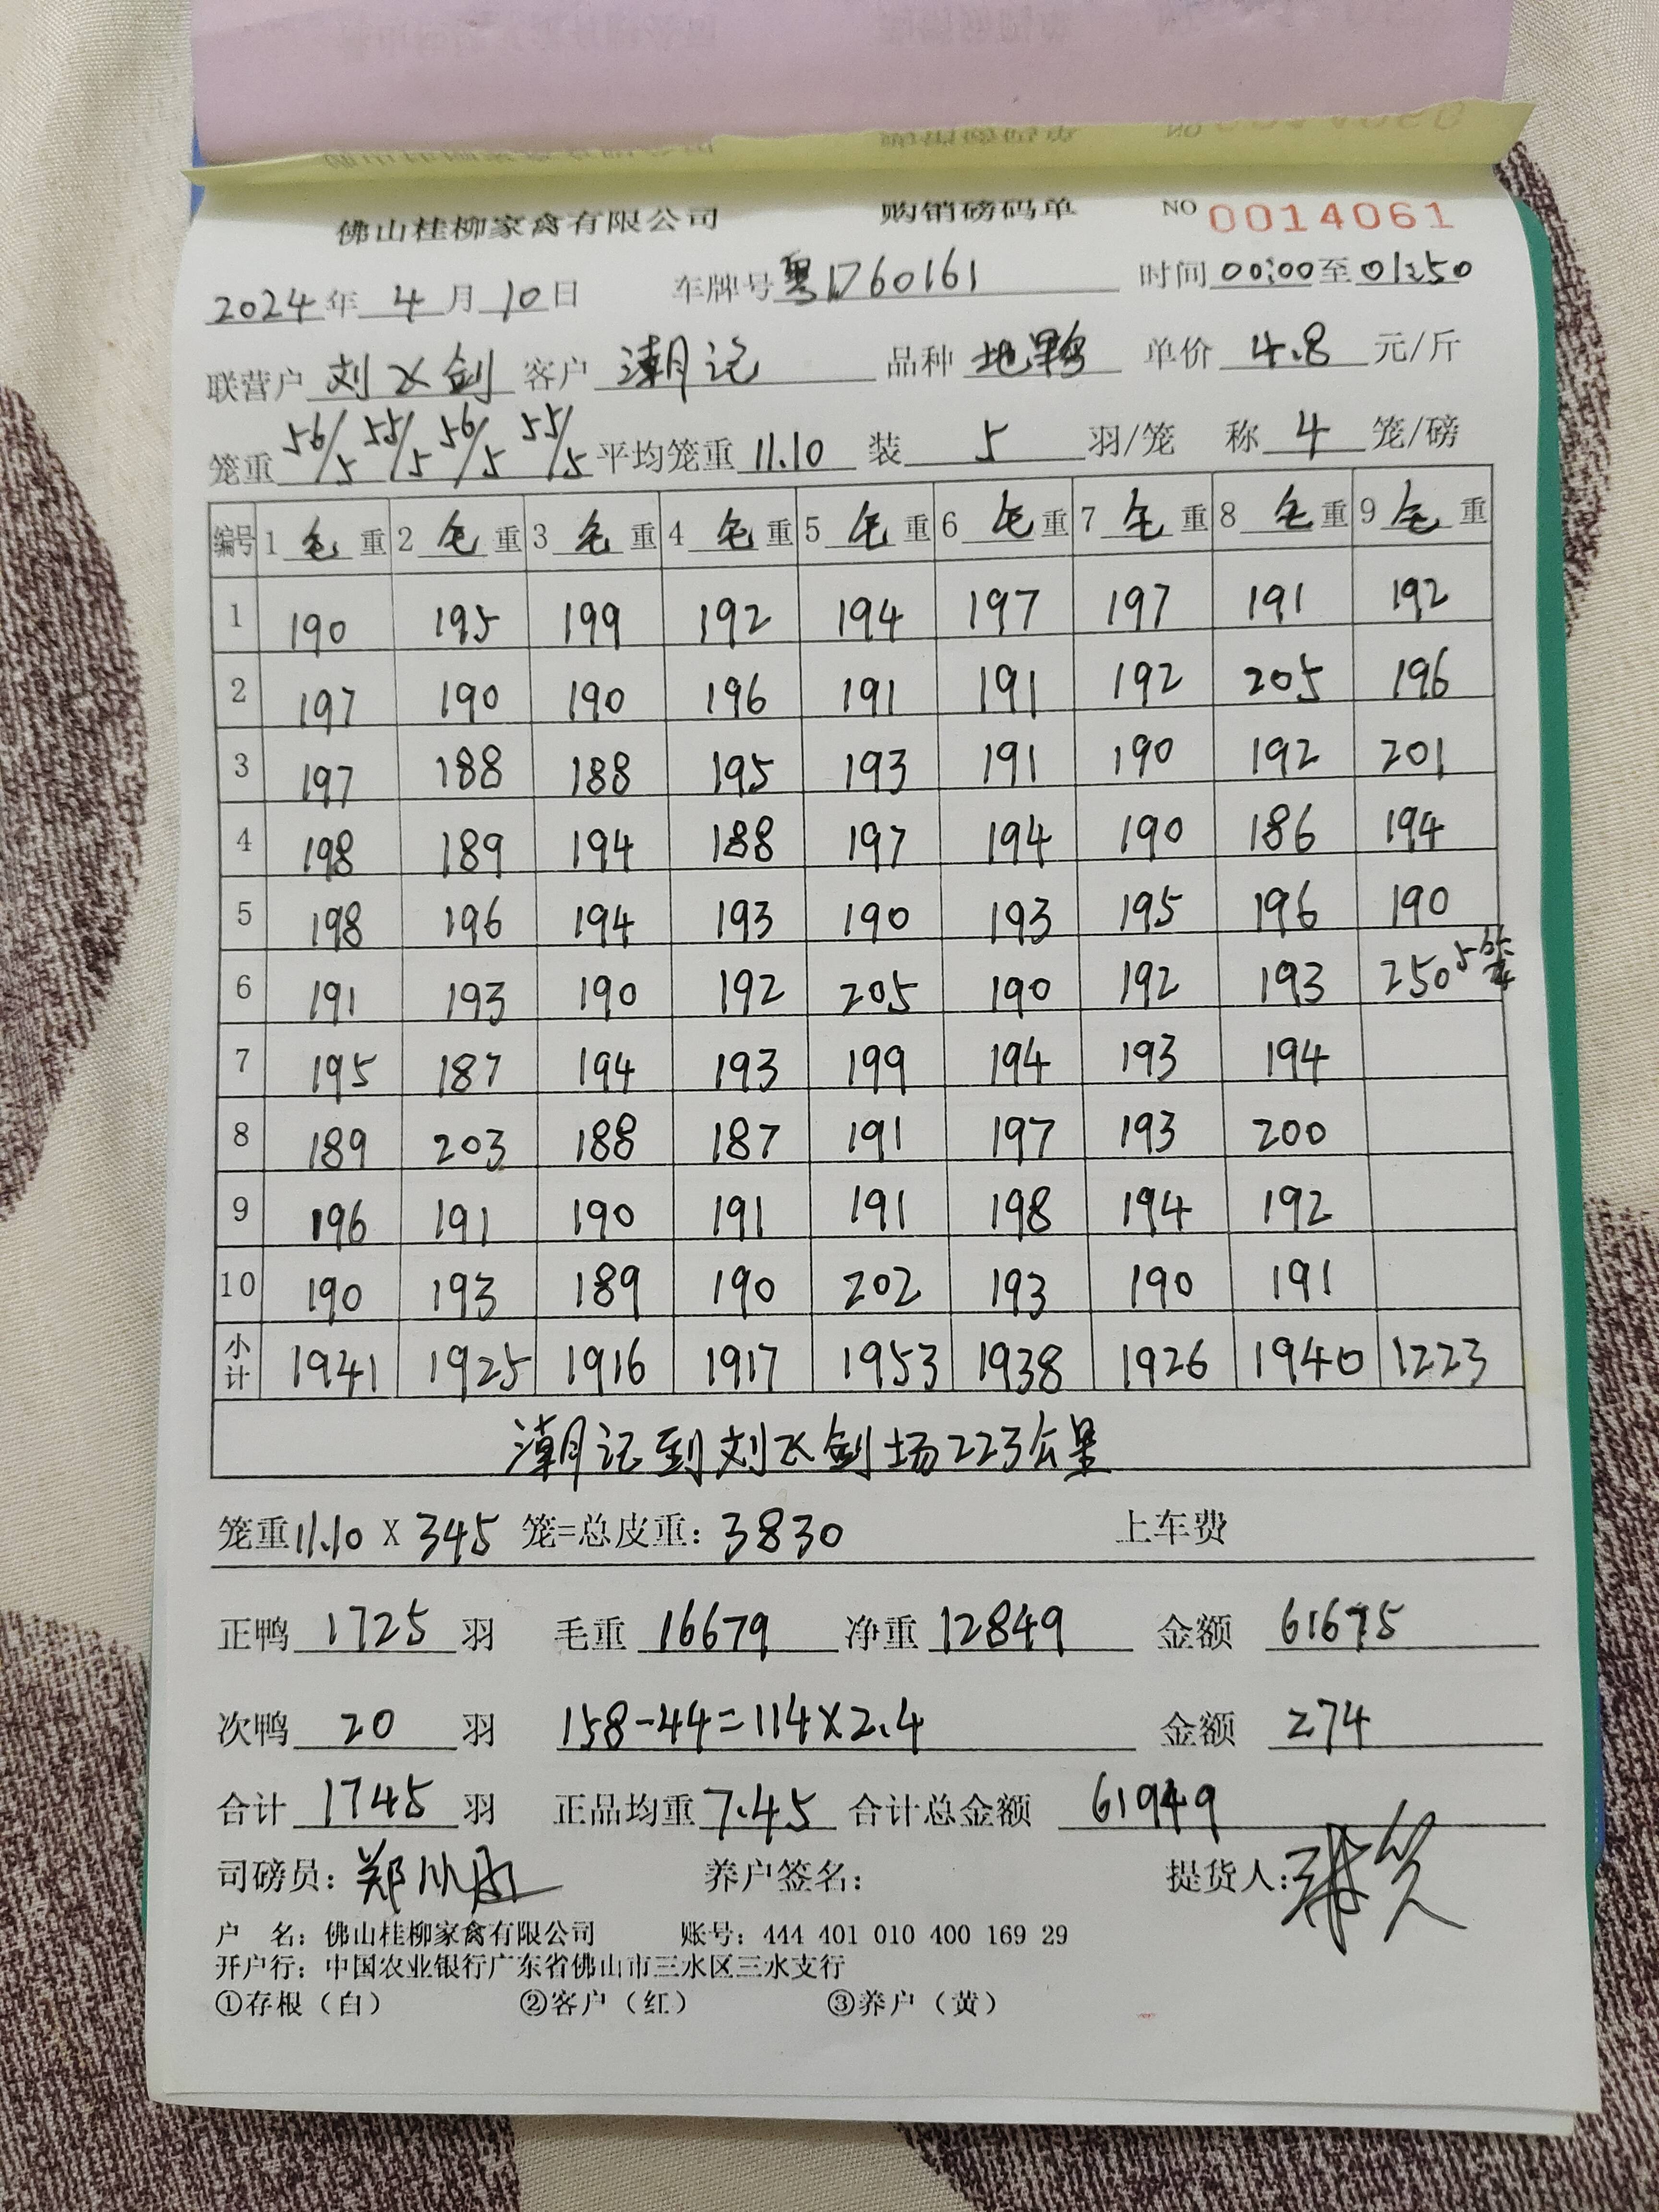 佛山桂柳家禽有限公司 购销磅码单 NO 0014061
2024年4月10日 车牌号粤1760161 时间00:00至01:50
联营户 刘飞剑 客户 潮记 品种 地鸭 单价 4.8 元/斤
笼重 56/5 55/5 56/5 55/5 平均笼重 11.10 装 5 羽/笼 称 4 笼/磅
编号 1 毛重 2 毛重 3 毛重 4 毛重 5 毛重 6 毛重 7 毛重 8 毛重 9 毛重
1 190 195 199 192 194 197 197 191 192
2 197 190 190 196 191 191 192 205 196
3 197 188 188 195 193 191 190 192 201
4 198 189 194 188 197 194 190 186 194
5 198 196 194 193 190 193 195 196 190
6 191 193 190 192 205 190 192 193 250 5笼
7 195 187 194 193 199 194 193 194
8 189 203 188 187 191 197 193 200
9 196 191 190 191 191 198 194 192
10 190 193 189 190 202 193 190 191
小计 1941 1925 1916 1917 1953 1938 1926 1940 1223
潮记到刘飞剑场223公里
笼重11.10 X 345 笼=总皮重：3830 上车费
正鸭 1725 羽 毛重 16679 净重 12849 金额 61675
次鸭 20 羽 158-44=114×2.4 金额 274
合计 1745 羽 正品均重 7.45 合计总金额 61949
司磅员：郑 养户签名： 提货人：
户 名：佛山桂柳家禽有限公司 账号：444 401 010 400 169 29
开户行：中国农业银行广东省佛山市三水区三水支行
①存根（白） ②客户（红） ③养户（黄）